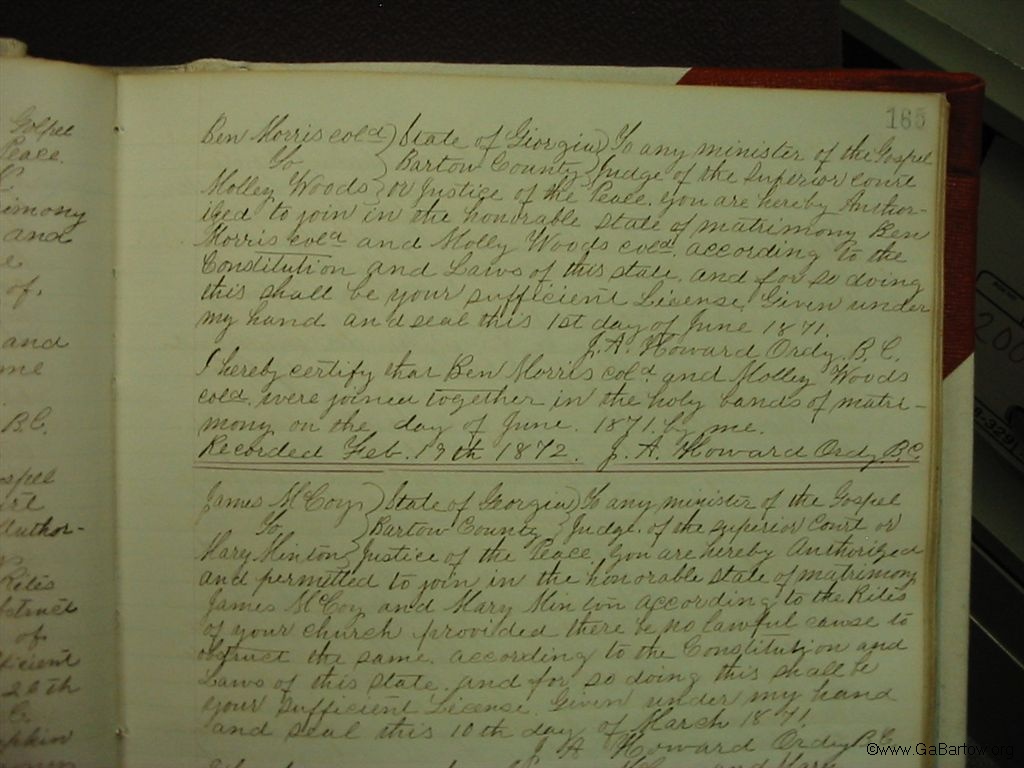 Golpel
Peace.
imony
and
of.
and
me
B.C.
ospell
Author-
Rites
obstruct
of
fficient
20th
165
Ben Morris cold } State of Giorgia } To any minister of the Gospel
To } Bartow County } Judge of the Superior court
Molley Woods } or Justice of the Peace. you are hereby Author-
ized to join in the honorable state of matrimony Ben
Morris cold and Molly Woods cold. according to the
Constitution and Laws of this state. and for so doing
this shall be your sufficient License. Given under
my hand and seal this 1st day of June 1871.
J. A. Howard Ordy. B. C.
I hereby certify that Ben Morris cold. and Molley Woods
cold. were joined together in the holy bands of matri-
mony on the day of June. 1871. by me.
Recorded Feb. 19th 1872. J. A. Howard Ordy B.C.
James McCoy } State of Georgia } To any minister of the Gospel
To } Bartow County } Judge. of the superior Court or
Mary Minton } Justice of the Peace, you are hereby Authorized
and permitted to join in the honorable state of matrimony
James McCoy and Mary Minton according to the Rites
of your church provided there be no lawful cause to
obstruct the same. according to the Constitution and
Laws of this state. and for so doing this shall be
your sufficient License. Given under my hand
and seal this 10th day of March 1871.
J A Howard Ordy B C
200
©www.GaBartow.org